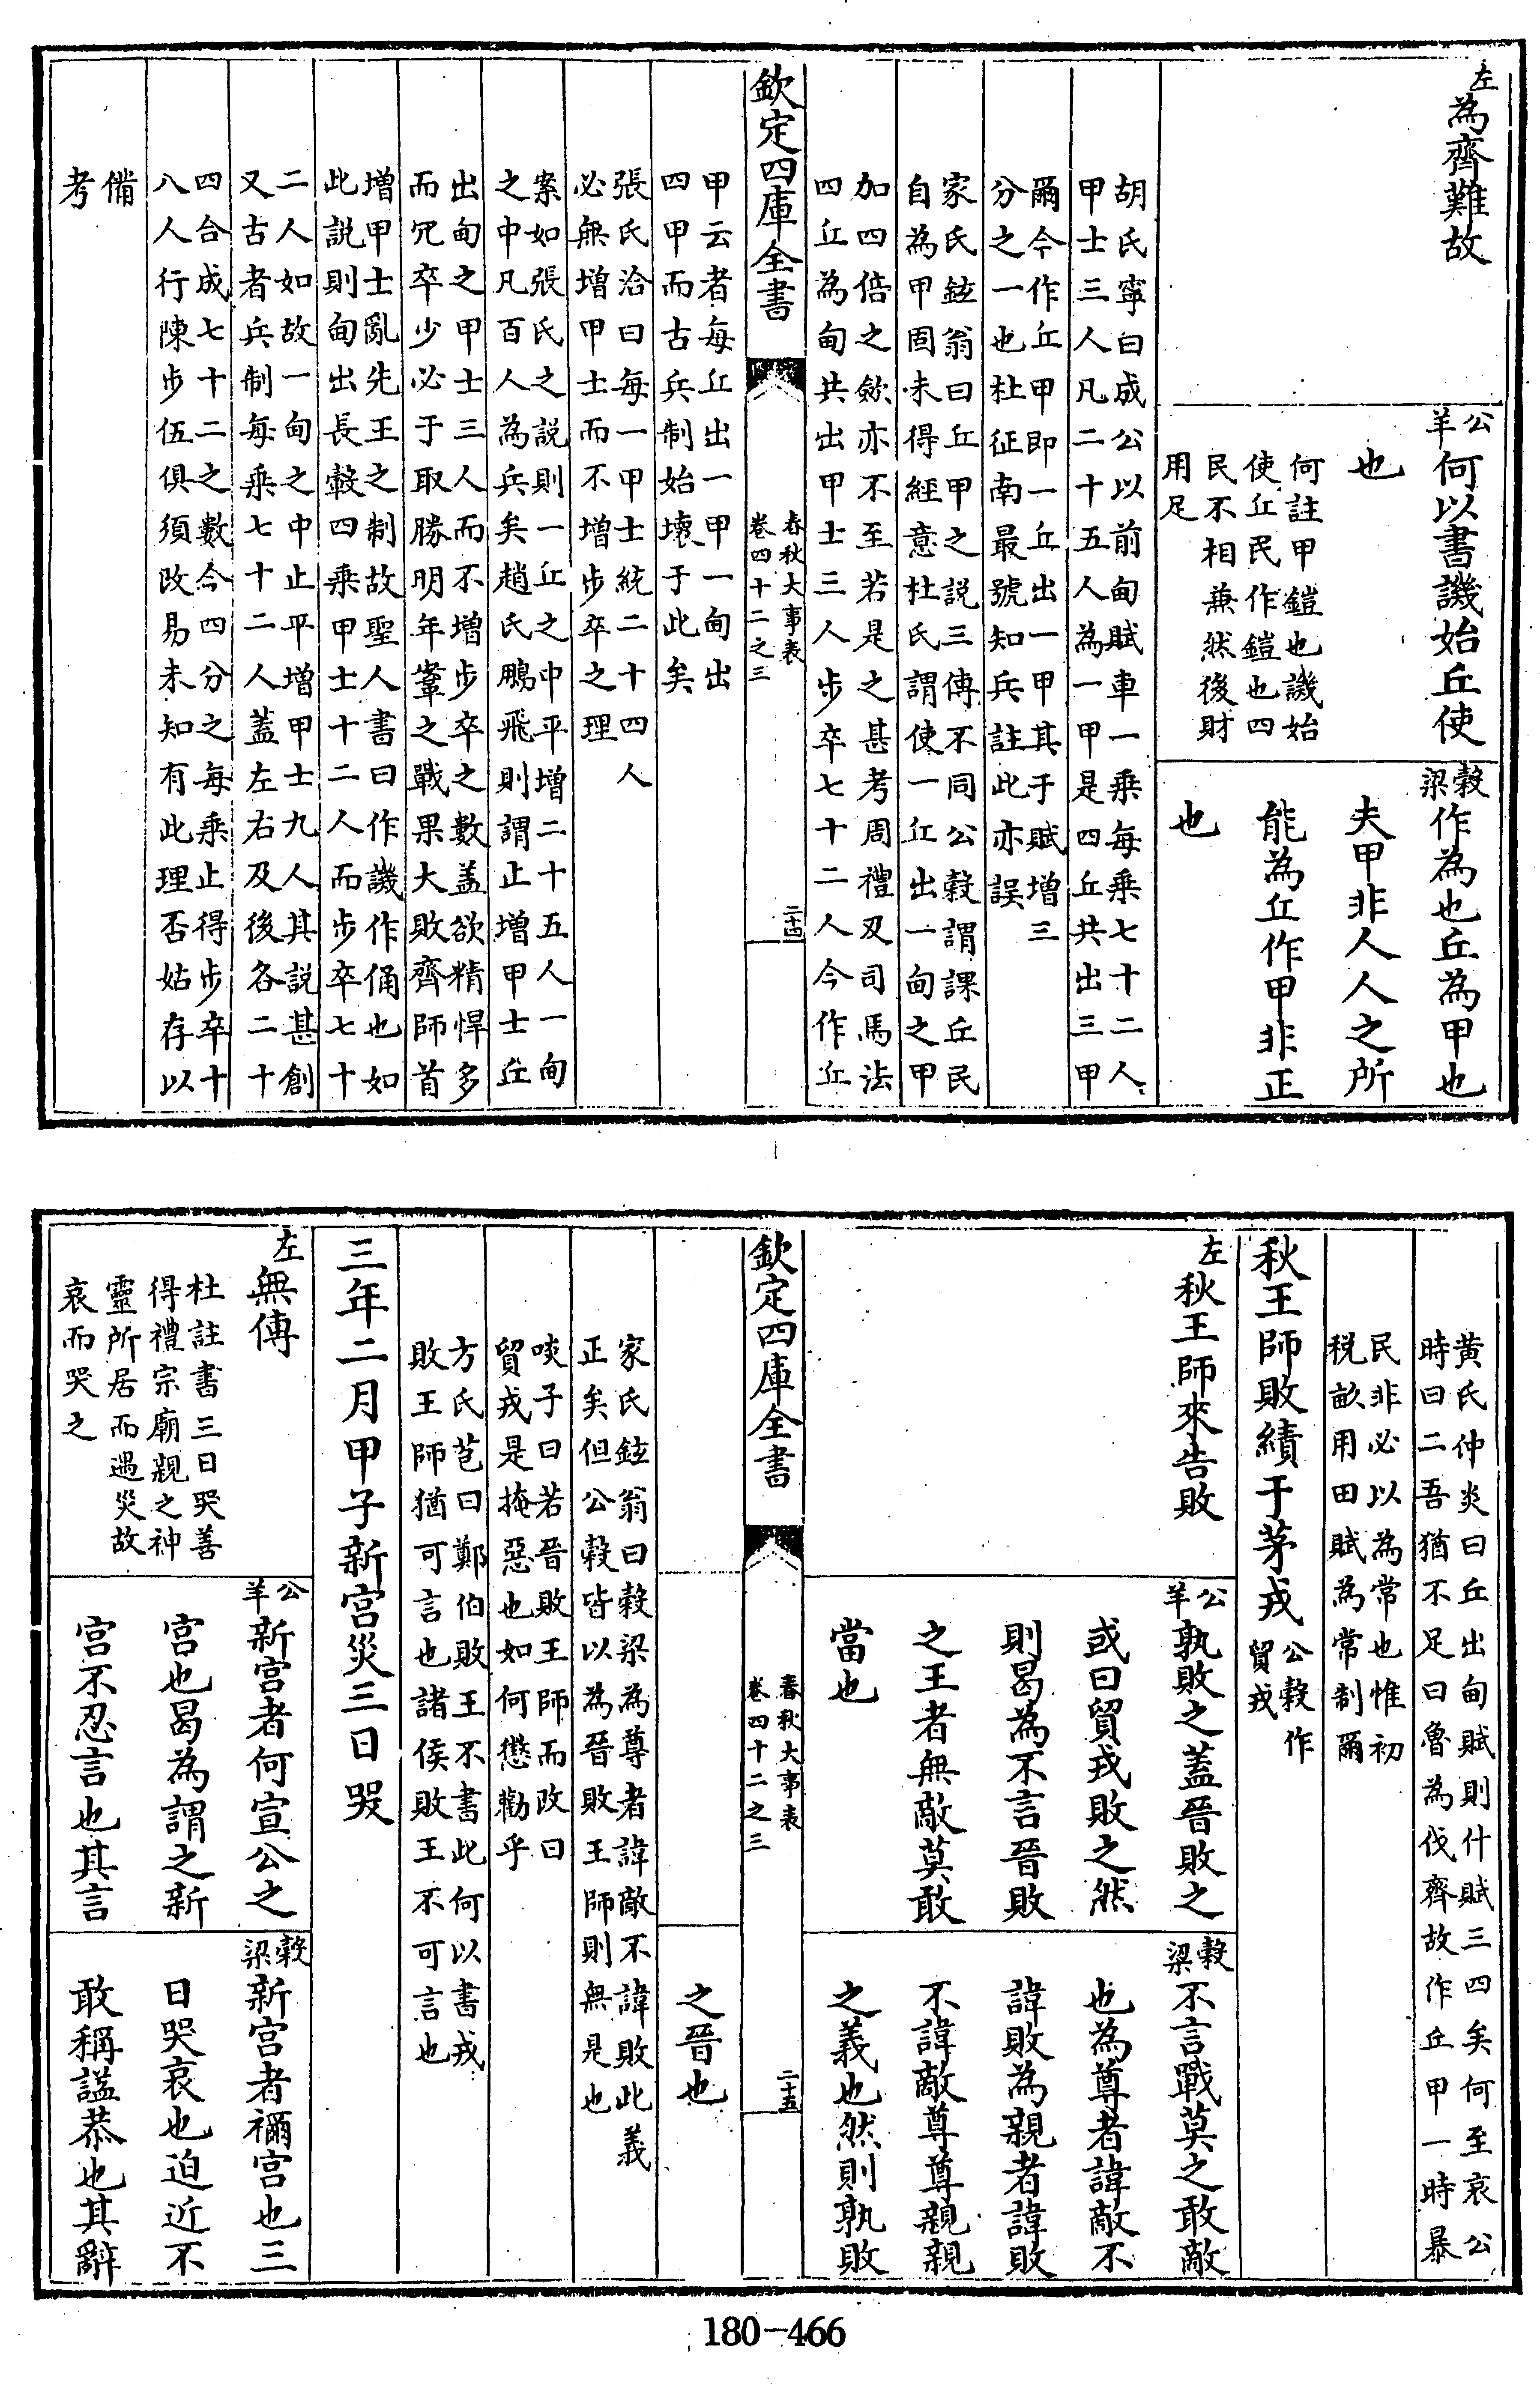 左
為齊難故
公羊
何以書譏始丘使
也
何註甲鎧也譏始
使丘民作鎧也四
民不相兼然後財
用足
穀梁
作為也丘為甲也
夫甲非人人之所
能為丘作甲非正
也
胡氏寧曰成公以前甸賦車一乘每乘七十二人
甲士三人凡二十五人為一甲是四丘共出三甲
爾今作丘甲即一丘出一甲其于賦增三
分之一也杜征南最號知兵註此亦誤
家氏鉉翁曰丘甲之説三傳不同公穀謂課丘民
自為甲固未得經意杜氏謂使一丘出一甸之甲
加四倍之歛亦不至若是之甚考周禮及司馬法
四丘為甸共出甲士三人步卒七十二人今作丘
欽定四庫全書
春秋大事表
卷四十二之三
二十四
甲云者每丘出一甲一甸出
四甲而古兵制始壞于此矣
張氏洽曰每一甲士統二十四人
必無增甲士而不增步卒之理
案如張氏之説則一丘之中平增二十五人一甸
之中凡百人為兵矣趙氏鵬飛則謂止增甲士丘
出甸之甲士三人而不增步卒之數盖欲精悍多
而冗卒少必于取勝明年鞌之戰果大敗齊師首
增甲士亂先王之制故聖人書曰作譏作俑也如
此説則甸出長轂四乘甲士十二人而步卒七十
二人如故一甸之中止平增甲士九人其説甚創
又古者兵制每乘七十二人蓋左右及後各二十
四合成七十二之數今四分之每乘止得步卒十
八人行陳步伍俱須改易未知有此理否姑存以
備
考
黄氏仲炎曰丘出甸賦則什賦三四矣何至哀公
時曰二吾猶不足曰魯為伐齊故作丘甲一時暴
民非必以為常也惟初
税畝用田賦為常制爾
秋王師敗績于茅戎
公穀作
貿戎
左
秋王師來告敗
公羊
孰敗之蓋晉敗之
或曰貿戎敗之然
則曷為不言晉敗
之王者無敵莫敢
當也
穀梁
不言戰莫之敢敵
也為尊者諱敵不
諱敗為親者諱敗
不諱敵尊尊親親
之義也然則孰敗
欽定四庫全書
春秋大事表
卷四十二之三
二十五
之晉也
家氏鉉翁曰穀梁為尊者諱敵不諱敗此義
正矣但公穀皆以為晉敗王師則無是也
啖子曰若晉敗王師而改曰
貿戎是掩惡也如何懲勸乎
方氏苞曰鄭伯敗王不書此何以書戎
敗王師猶可言也諸侯敗王不可言也
三年二月甲子新宫災三日哭
左
無傳
杜註書三日哭善
得禮宗廟親之神
靈所居而遇災故
哀而哭之
公羊
新宫者何宣公之
宫也曷為謂之新
宫不忍言也其言
穀梁
新宫者禰宫也三
日哭哀也迫近不
敢稱謚恭也其辭
180-466